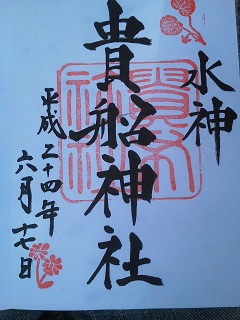 水神
貴船神社
平成二十四年
六月十七日